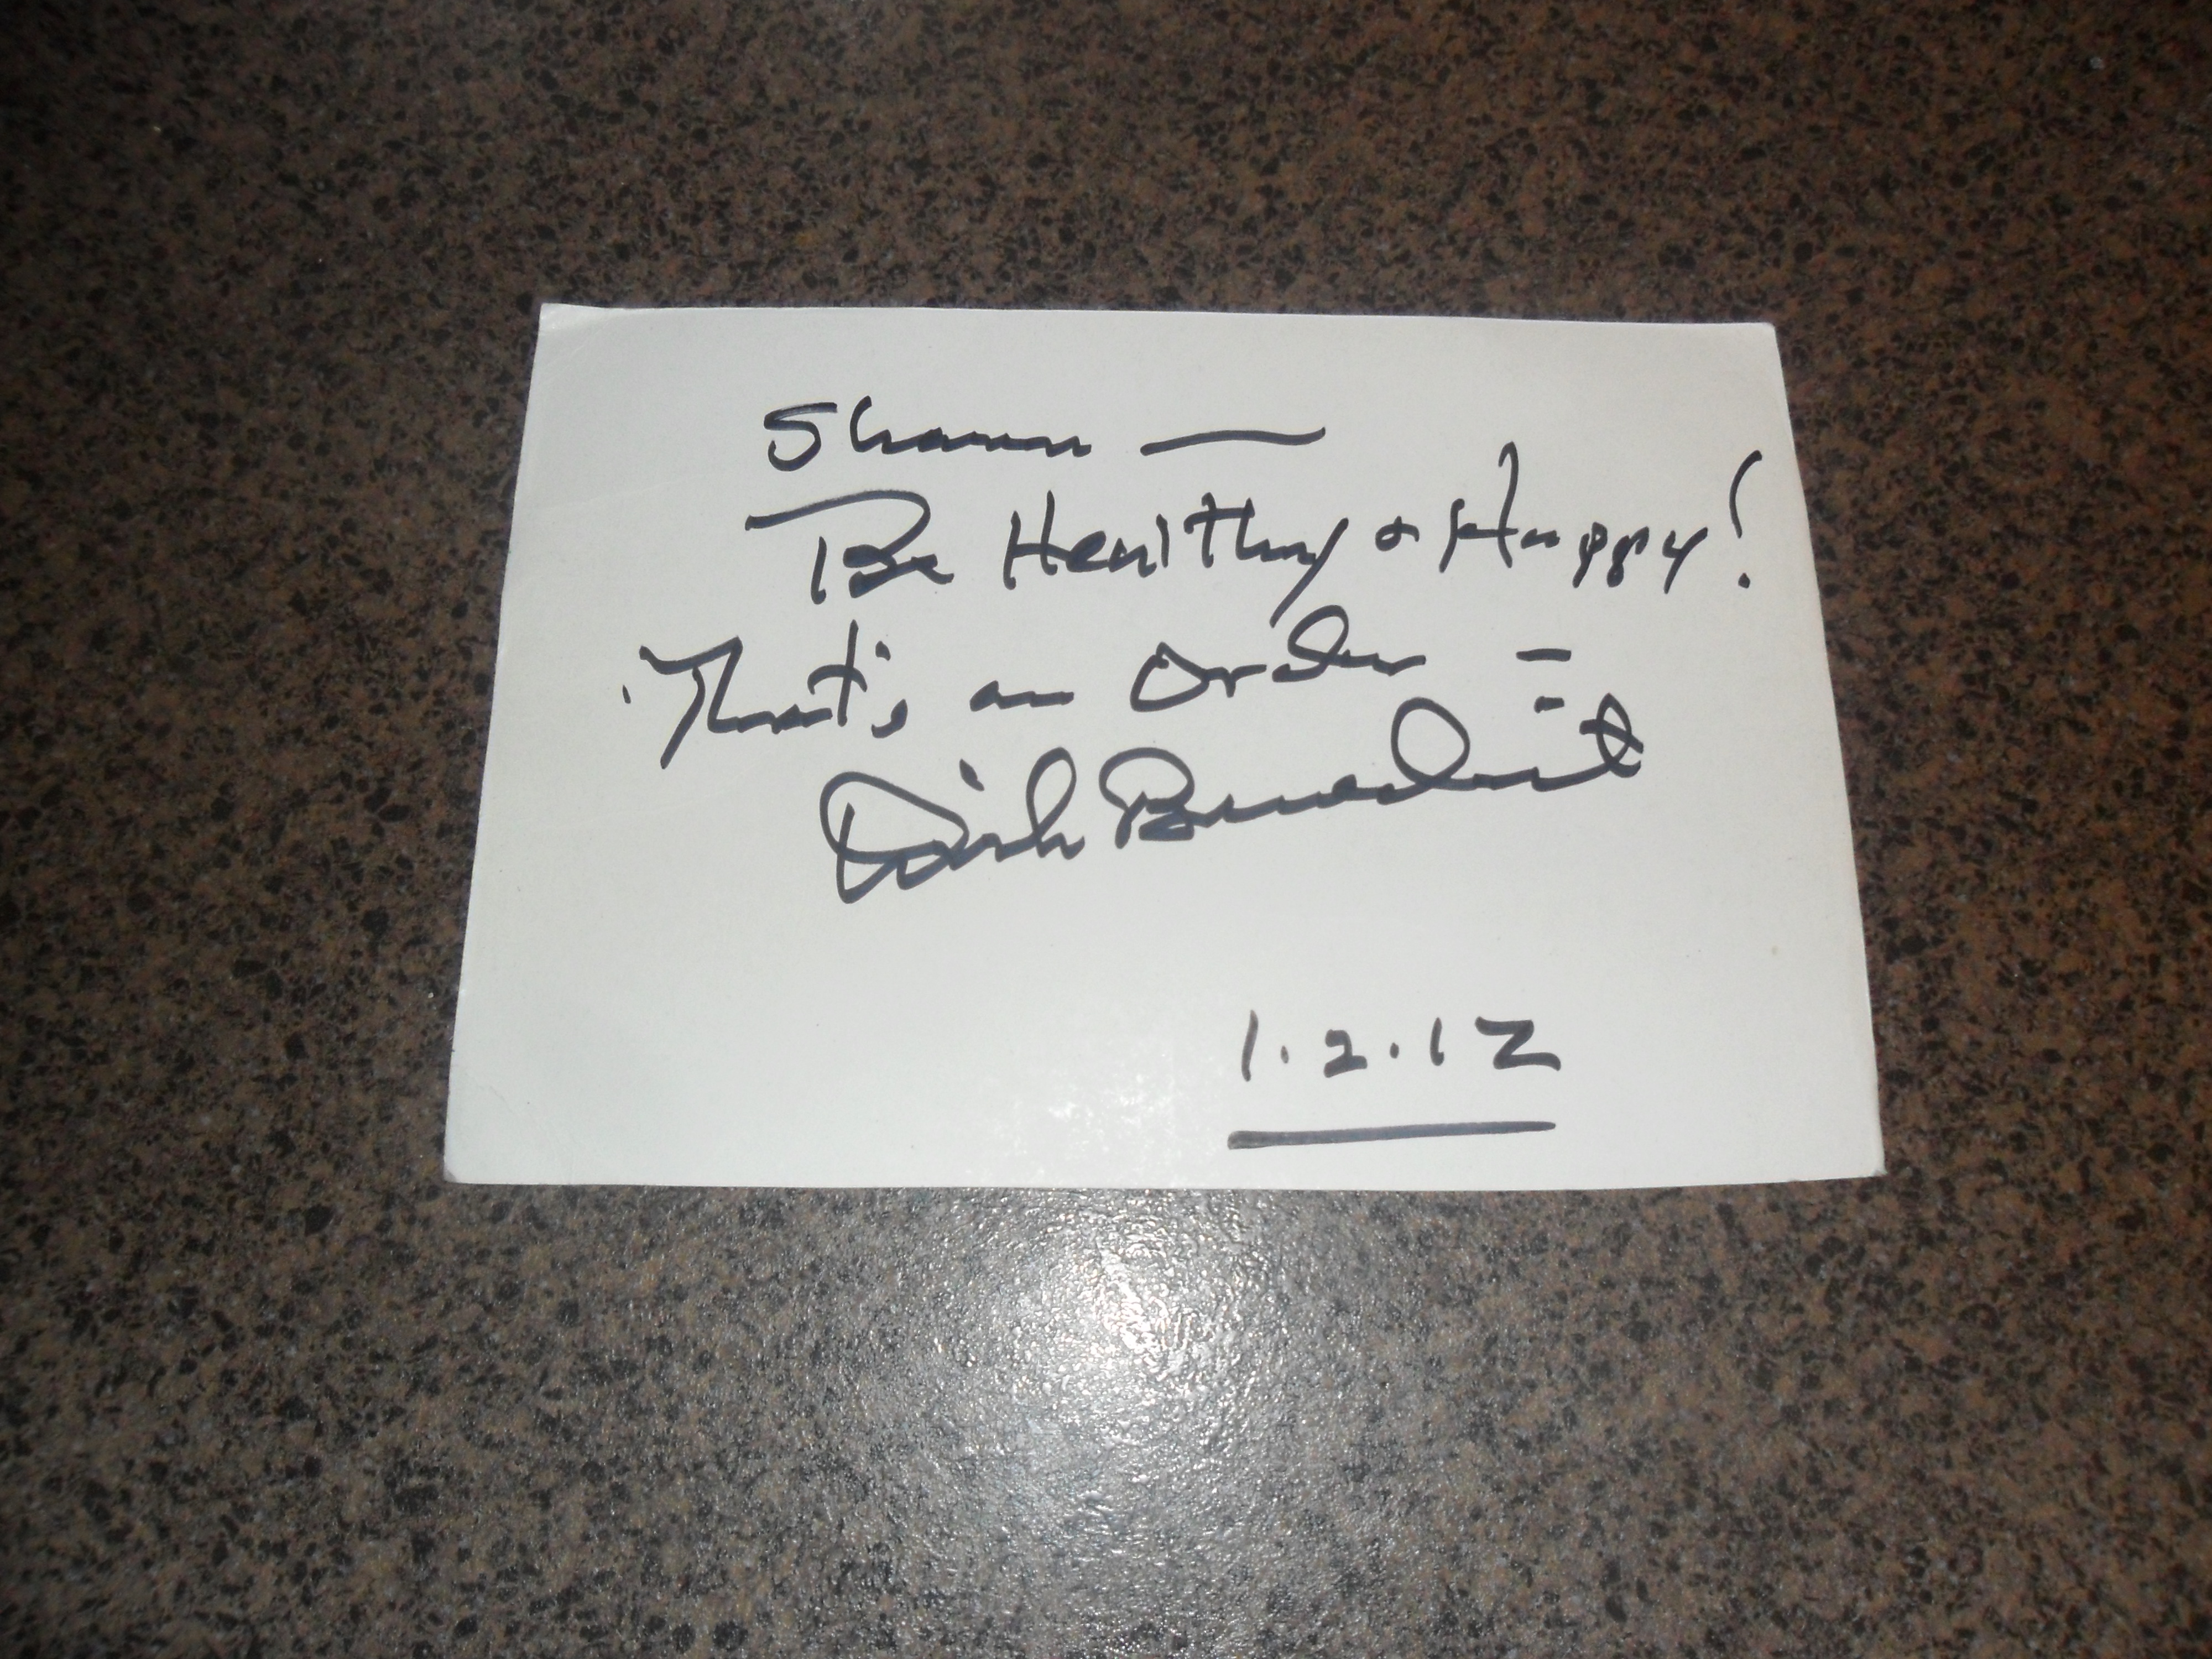 Shawn —
Be Healthy & Happy!
That's an order =
Dirk Benedict
1.2.12